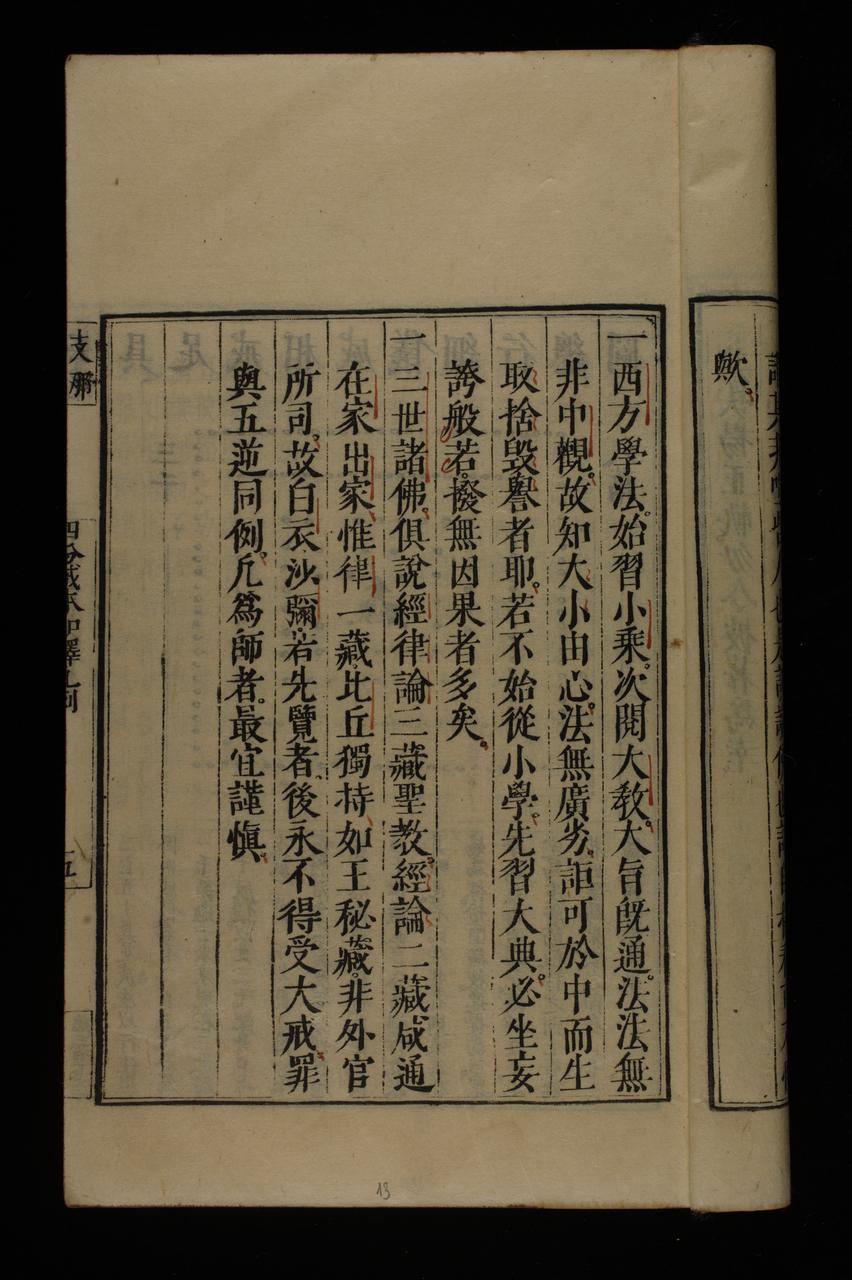 歟
一西方學法始習小乘次閱大教大旨旣通法法無
非中觀故知大小由心法無廣劣詎可於中而生
取捨毀譽者耶若不始從小學先習大典必坐妄
誇般若撥無因果者多矣
一三世諸佛俱說經律論三藏聖教經論二藏咸通
在家出家惟律一藏比丘獨持如王秘藏非外官
所司故白衣沙彌若先覽者後永不得受大戒罪
與五逆同例凡爲師者最宜謹愼
支那
五
13